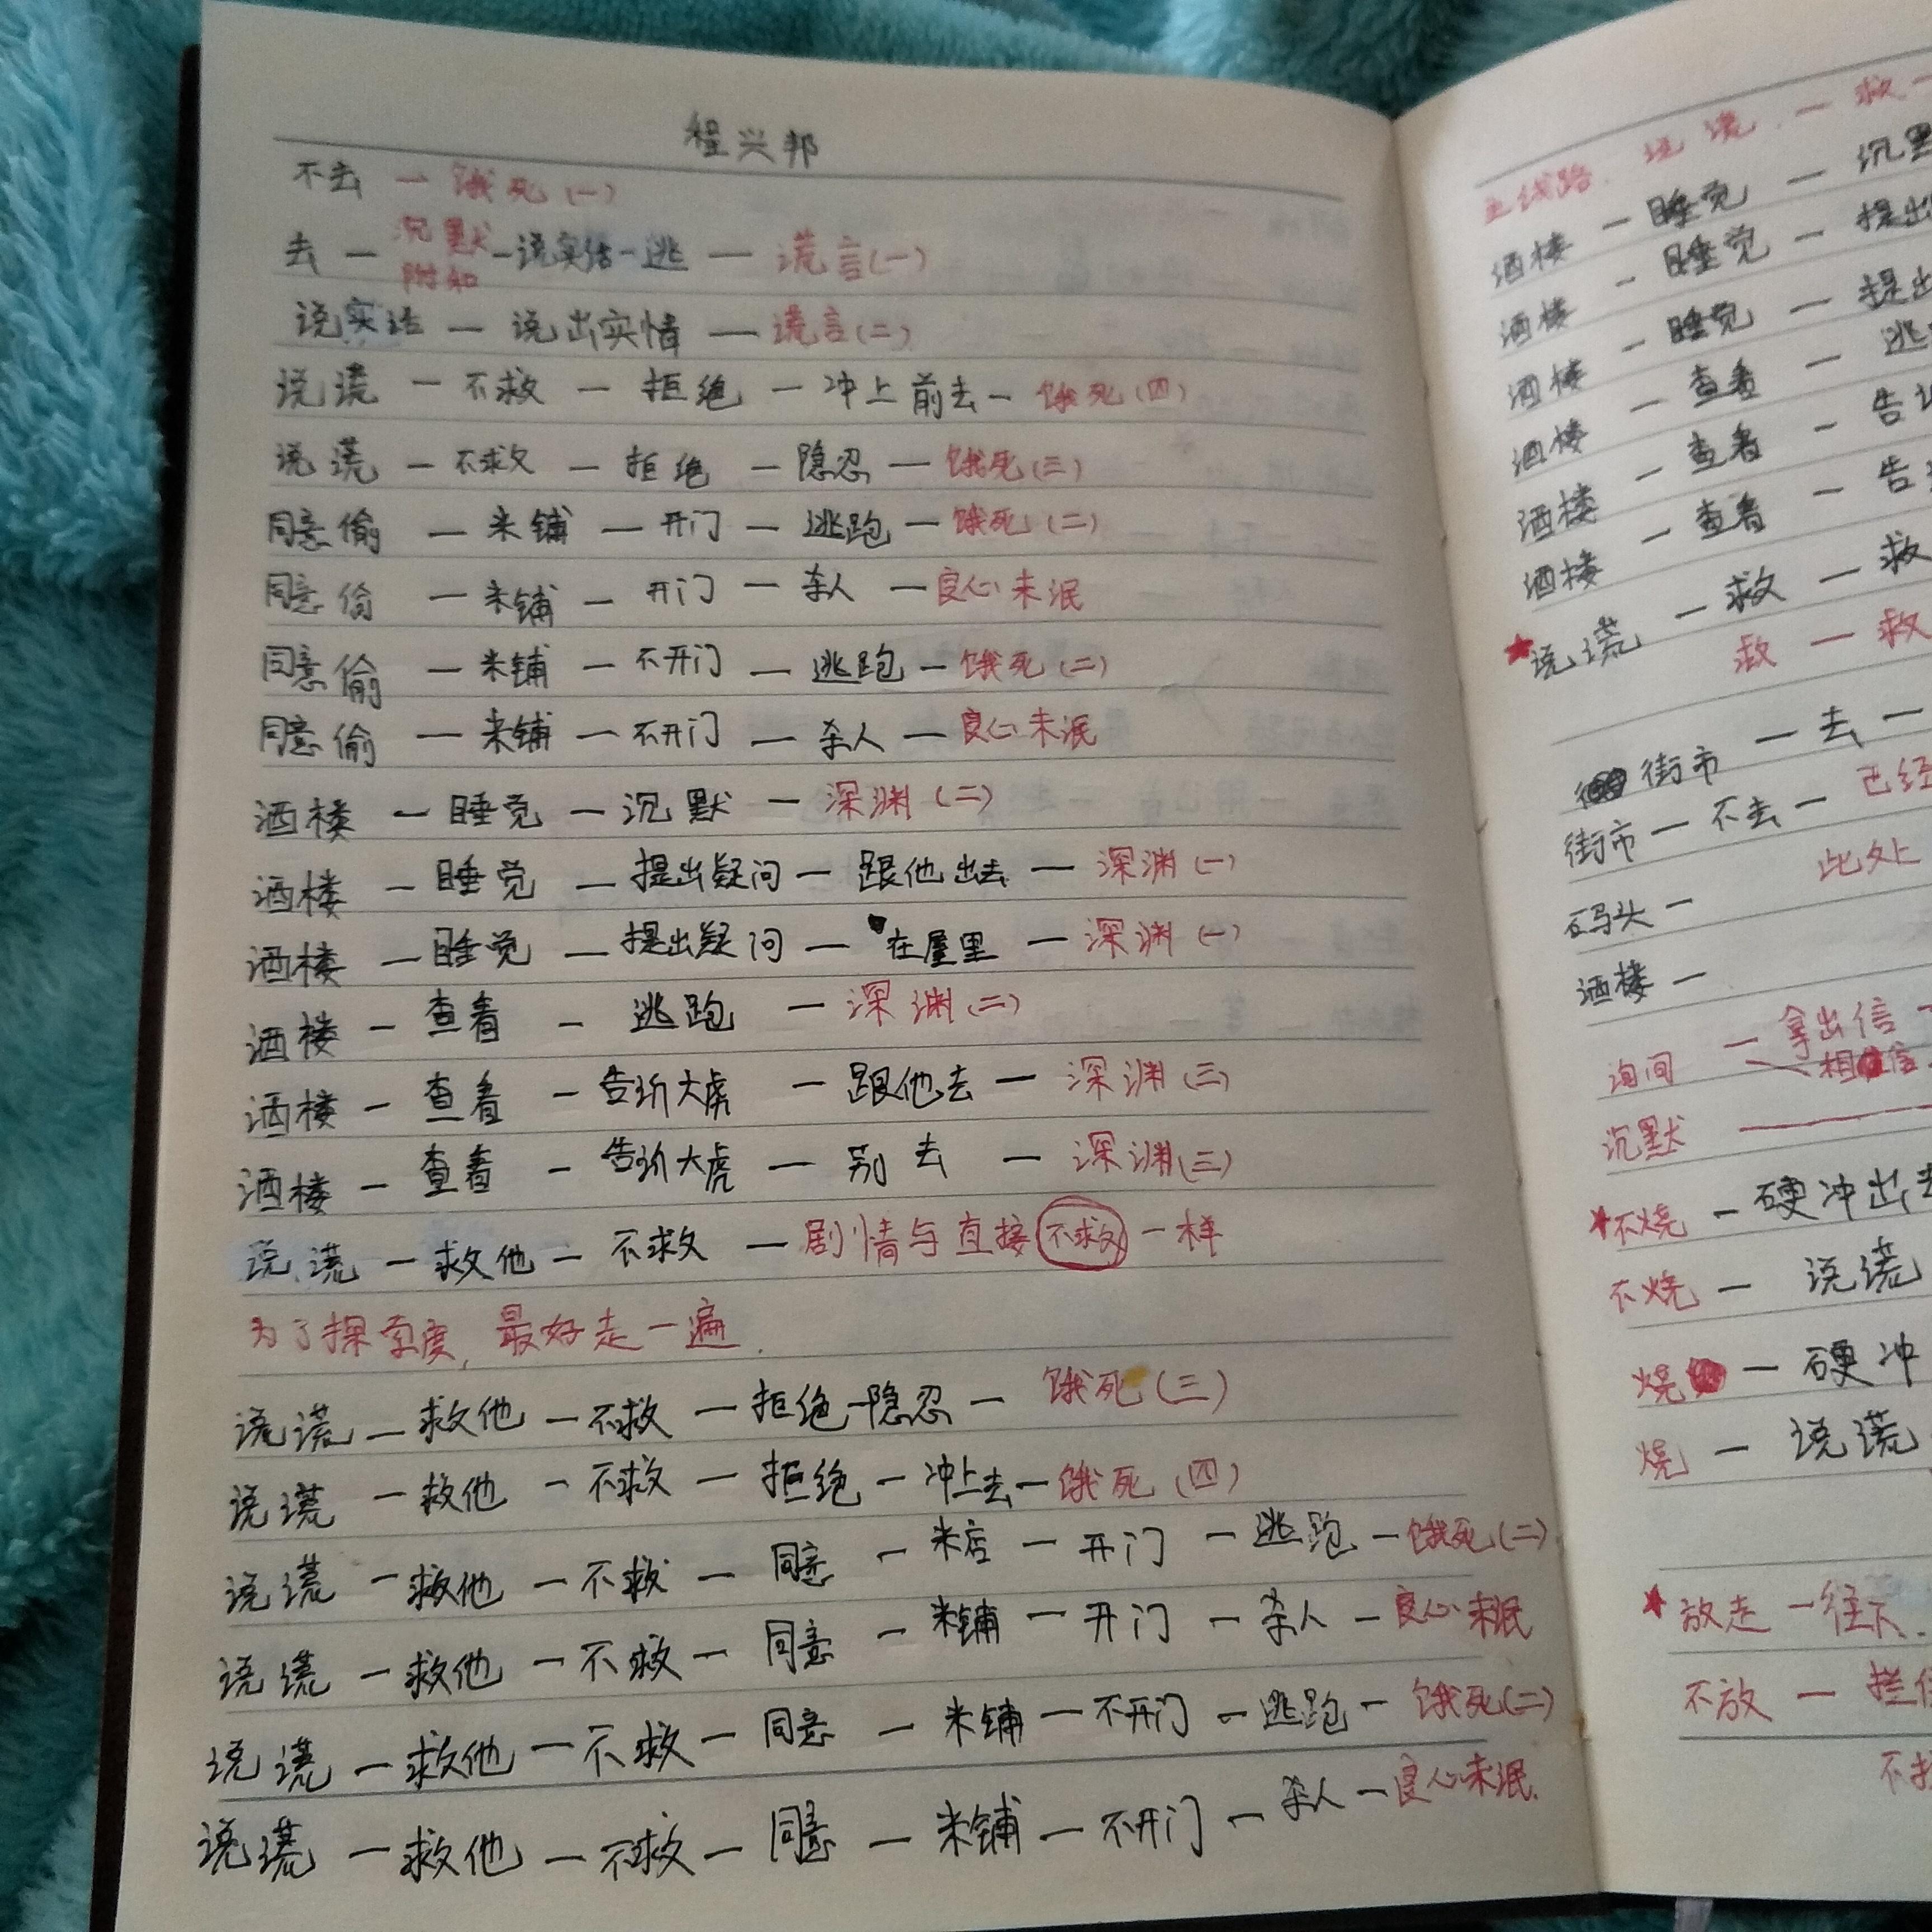 程兴邦
不去 — 饿死(一)
去 — 沉默 附和 - 说实话 - 逃 — 谎言(一)
说实话 — 说出实情 — 谎言(二)
说谎 — 不救 — 拒绝 — 冲上前去 — 饿死(四)
说谎 — 不救 — 拒绝 — 隐忍 — 饿死(三)
同意偷 — 米铺 — 开门 — 逃跑 — 饿死(二)
同意偷 — 米铺 — 开门 — 杀人 — 良心未泯
同意偷 — 米铺 — 不开门 — 逃跑 — 饿死(二)
同意偷 — 米铺 — 不开门 — 杀人 — 良心未泯
酒楼 — 睡觉 — 沉默 — 深渊(二)
酒楼 — 睡觉 — 提出疑问 — 跟他出去 — 深渊(一)
酒楼 — 睡觉 — 提出疑问 — 在屋里 — 深渊(一)
酒楼 — 查看 — 逃跑 — 深渊(二)
酒楼 — 查看 — 告诉大虎 — 跟他去 — 深渊(三)
酒楼 — 查看 — 告诉大虎 — 别去 — 深渊(三)
说谎 — 救他 — 不救 — 剧情与直接不救一样
为了探索度,最好走一遍.
说谎 — 救他 — 不救 — 拒绝 — 隐忍 — 饿死(三)
说谎 — 救他 — 不救 — 拒绝 — 冲上去 — 饿死(四)
说谎 — 救他 — 不救 — 同意 — 米店 — 开门 — 逃跑 — 饿死(二)
说谎 — 救他 — 不救 — 同意 — 米铺 — 开门 — 杀人 — 良心未泯
说谎 — 救他 — 不救 — 同意 — 米铺 — 不开门 — 逃跑 — 饿死(二)
说谎 — 救他 — 不救 — 同意 — 米铺 — 不开门 — 杀人 — 良心未泯.
主线路. 说谎 — 救 —
酒楼 — 睡觉 — 沉默
酒楼 — 睡觉 — 提出
酒楼 — 睡觉 — 提出
酒楼 — 查看 — 逃
酒楼 — 查看 — 告诉
酒楼 — 查看 — 告
★说谎 — 救 — 救
救 — 救
街市 — 去 —
街市 — 不去 — 已经
此处
码头 —
酒楼 —
询问 — 拿出信 —
相信
沉默
★不烧 — 硬冲出去
不烧 — 说谎
烧 — 硬冲
烧 — 说谎
★放走 — 往下.
不放 —